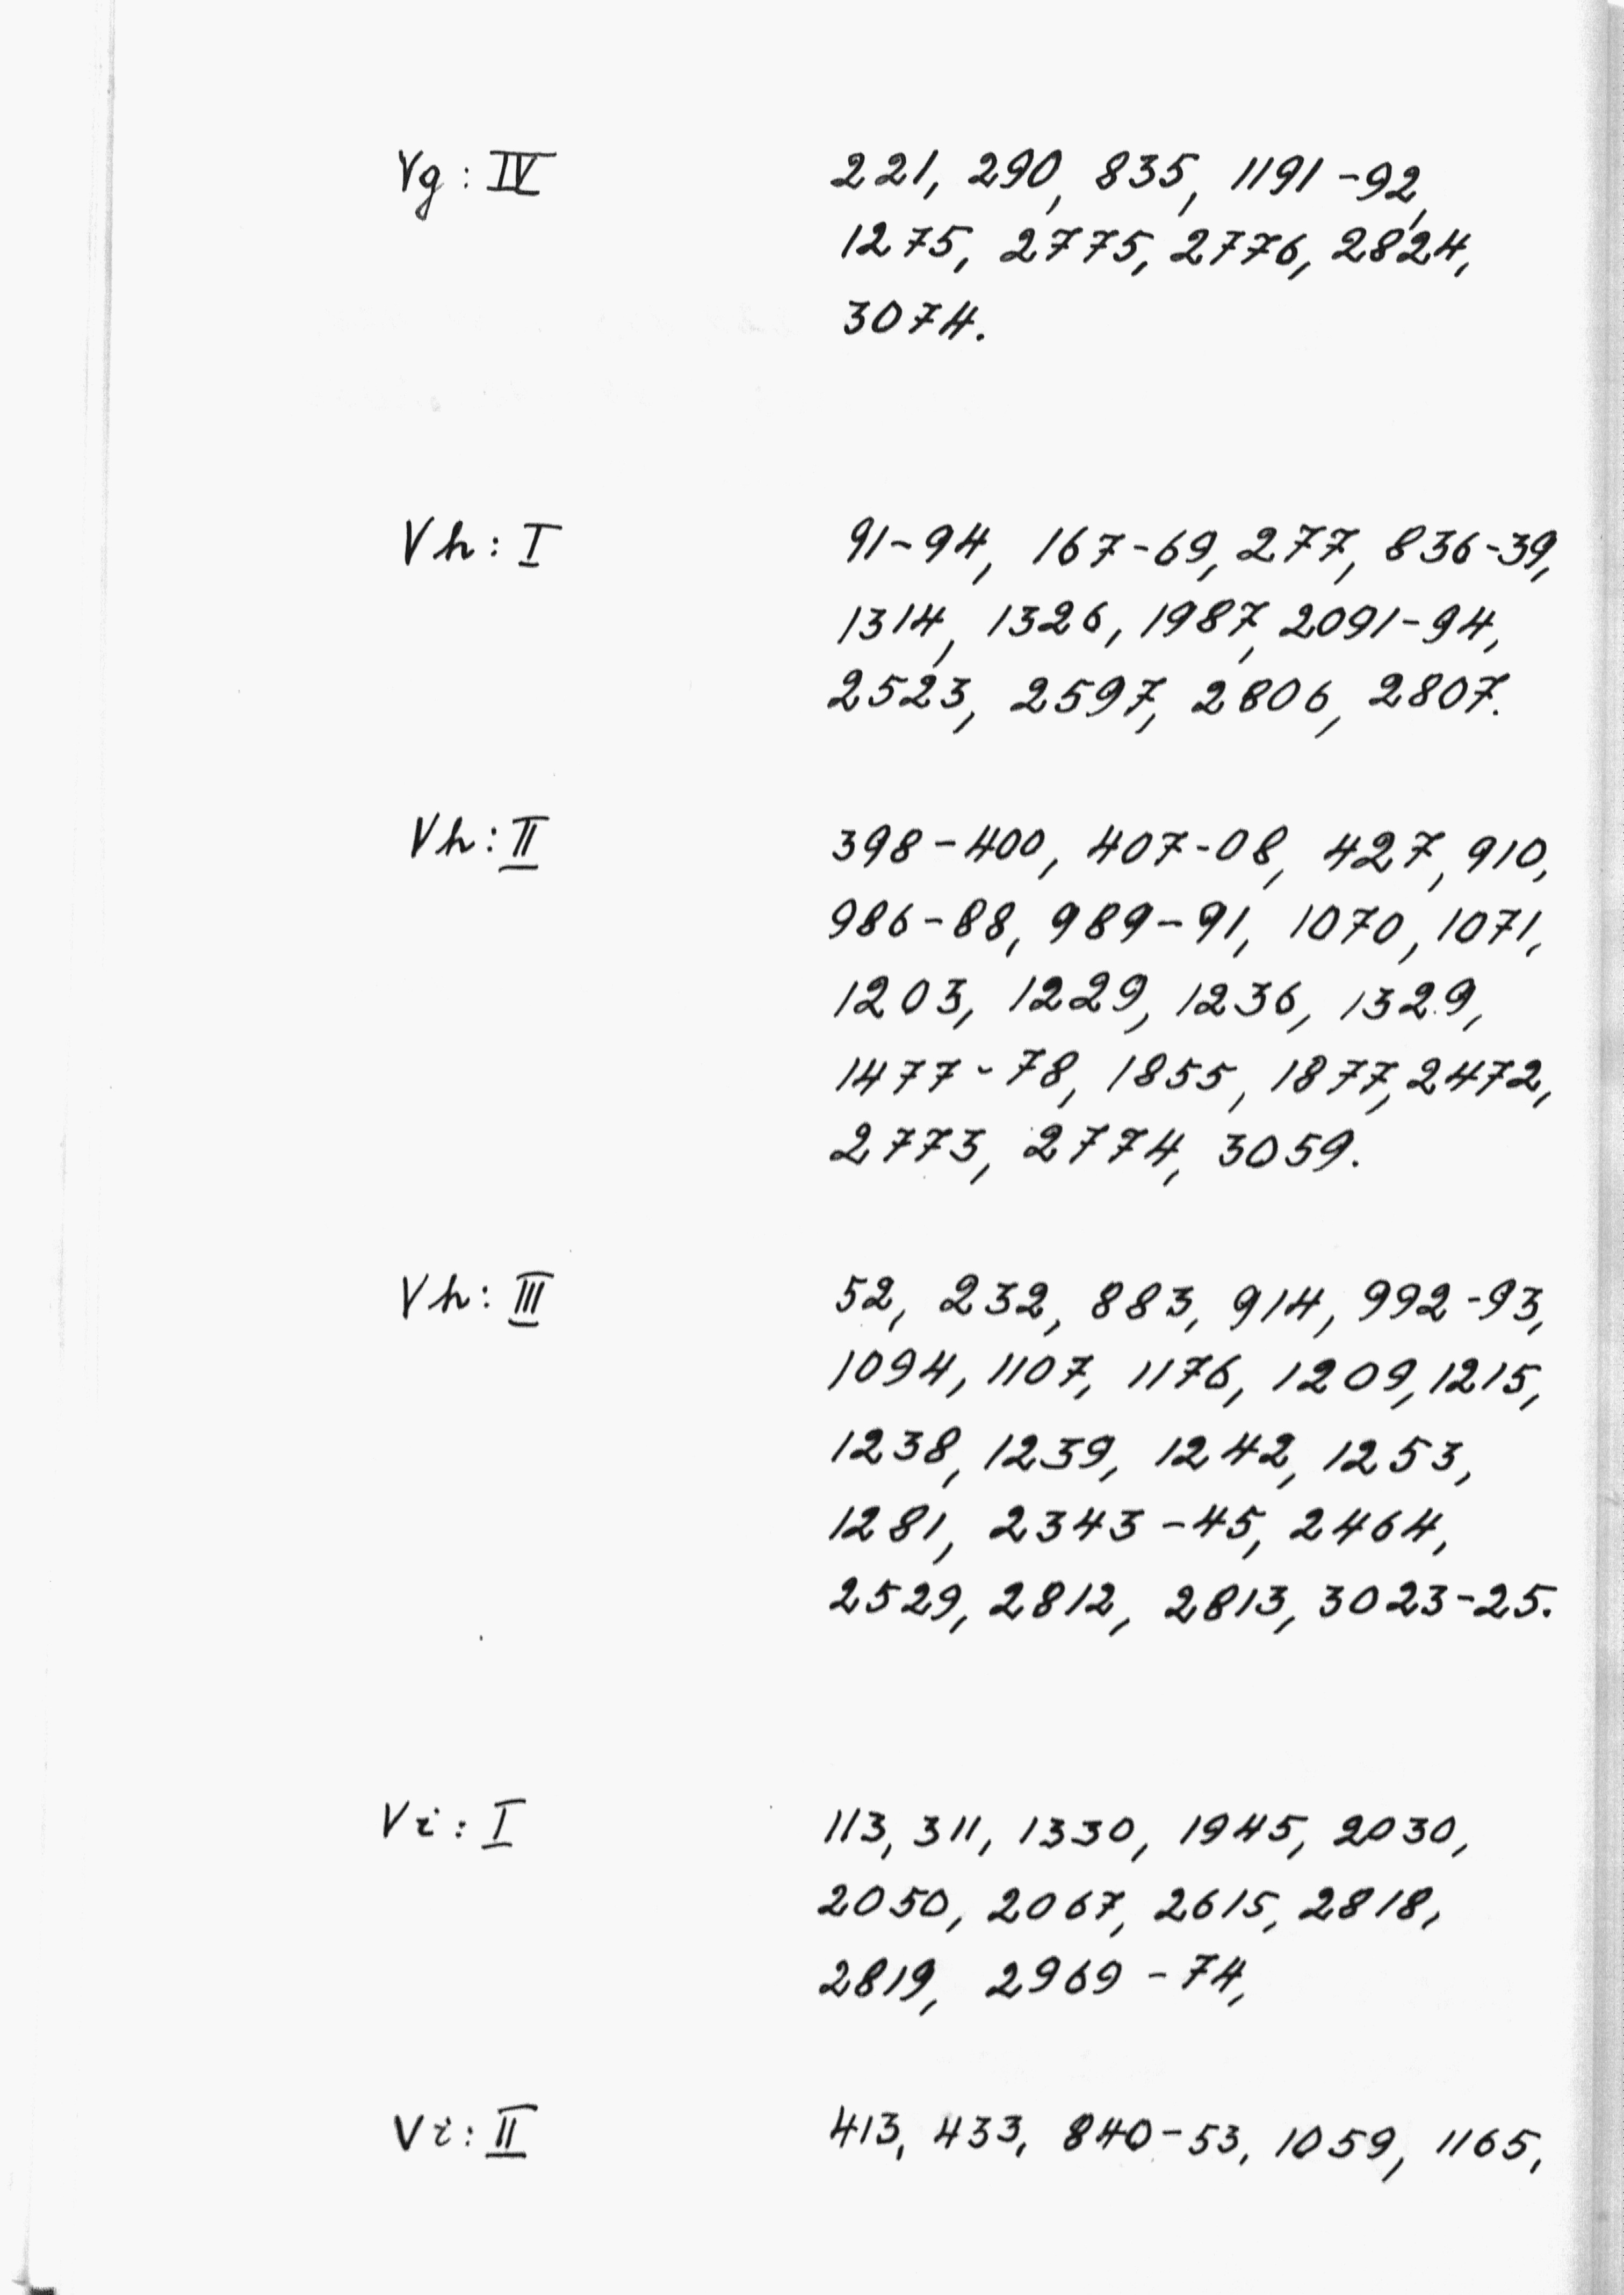 Vg: IV 221, 290, 835, 1191-92,
1275, 2775, 2776, 2824,
3074.
Vh: I 91-94, 167-69, 277, 836-39,
1314, 1326, 1987, 2091-94,
2523, 2597, 2806, 2807.
Vh: II 398-400, 407-08, 427, 910,
986-88, 989-91, 1070, 1071,
1203, 1229, 1236, 1329,
1477-78, 1855, 1877, 2472,
2773, 2774, 3059.
Vh: III 52, 232, 883, 914, 992-93,
1094, 1107, 1176, 1209, 1215,
1238, 1239, 1242, 1253,
1281, 2343-45, 2464,
2529, 2812, 2813, 3023-25.
Vi: I 113, 311, 1330, 1945, 2030,
2050, 2067, 2615, 2818,
2819, 2969-74,
Vi: II 413, 433, 840-53, 1059, 1165,